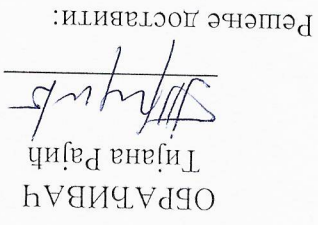 ОБРАЂИВАЧ
Тијана Рајић
Решење доставити: